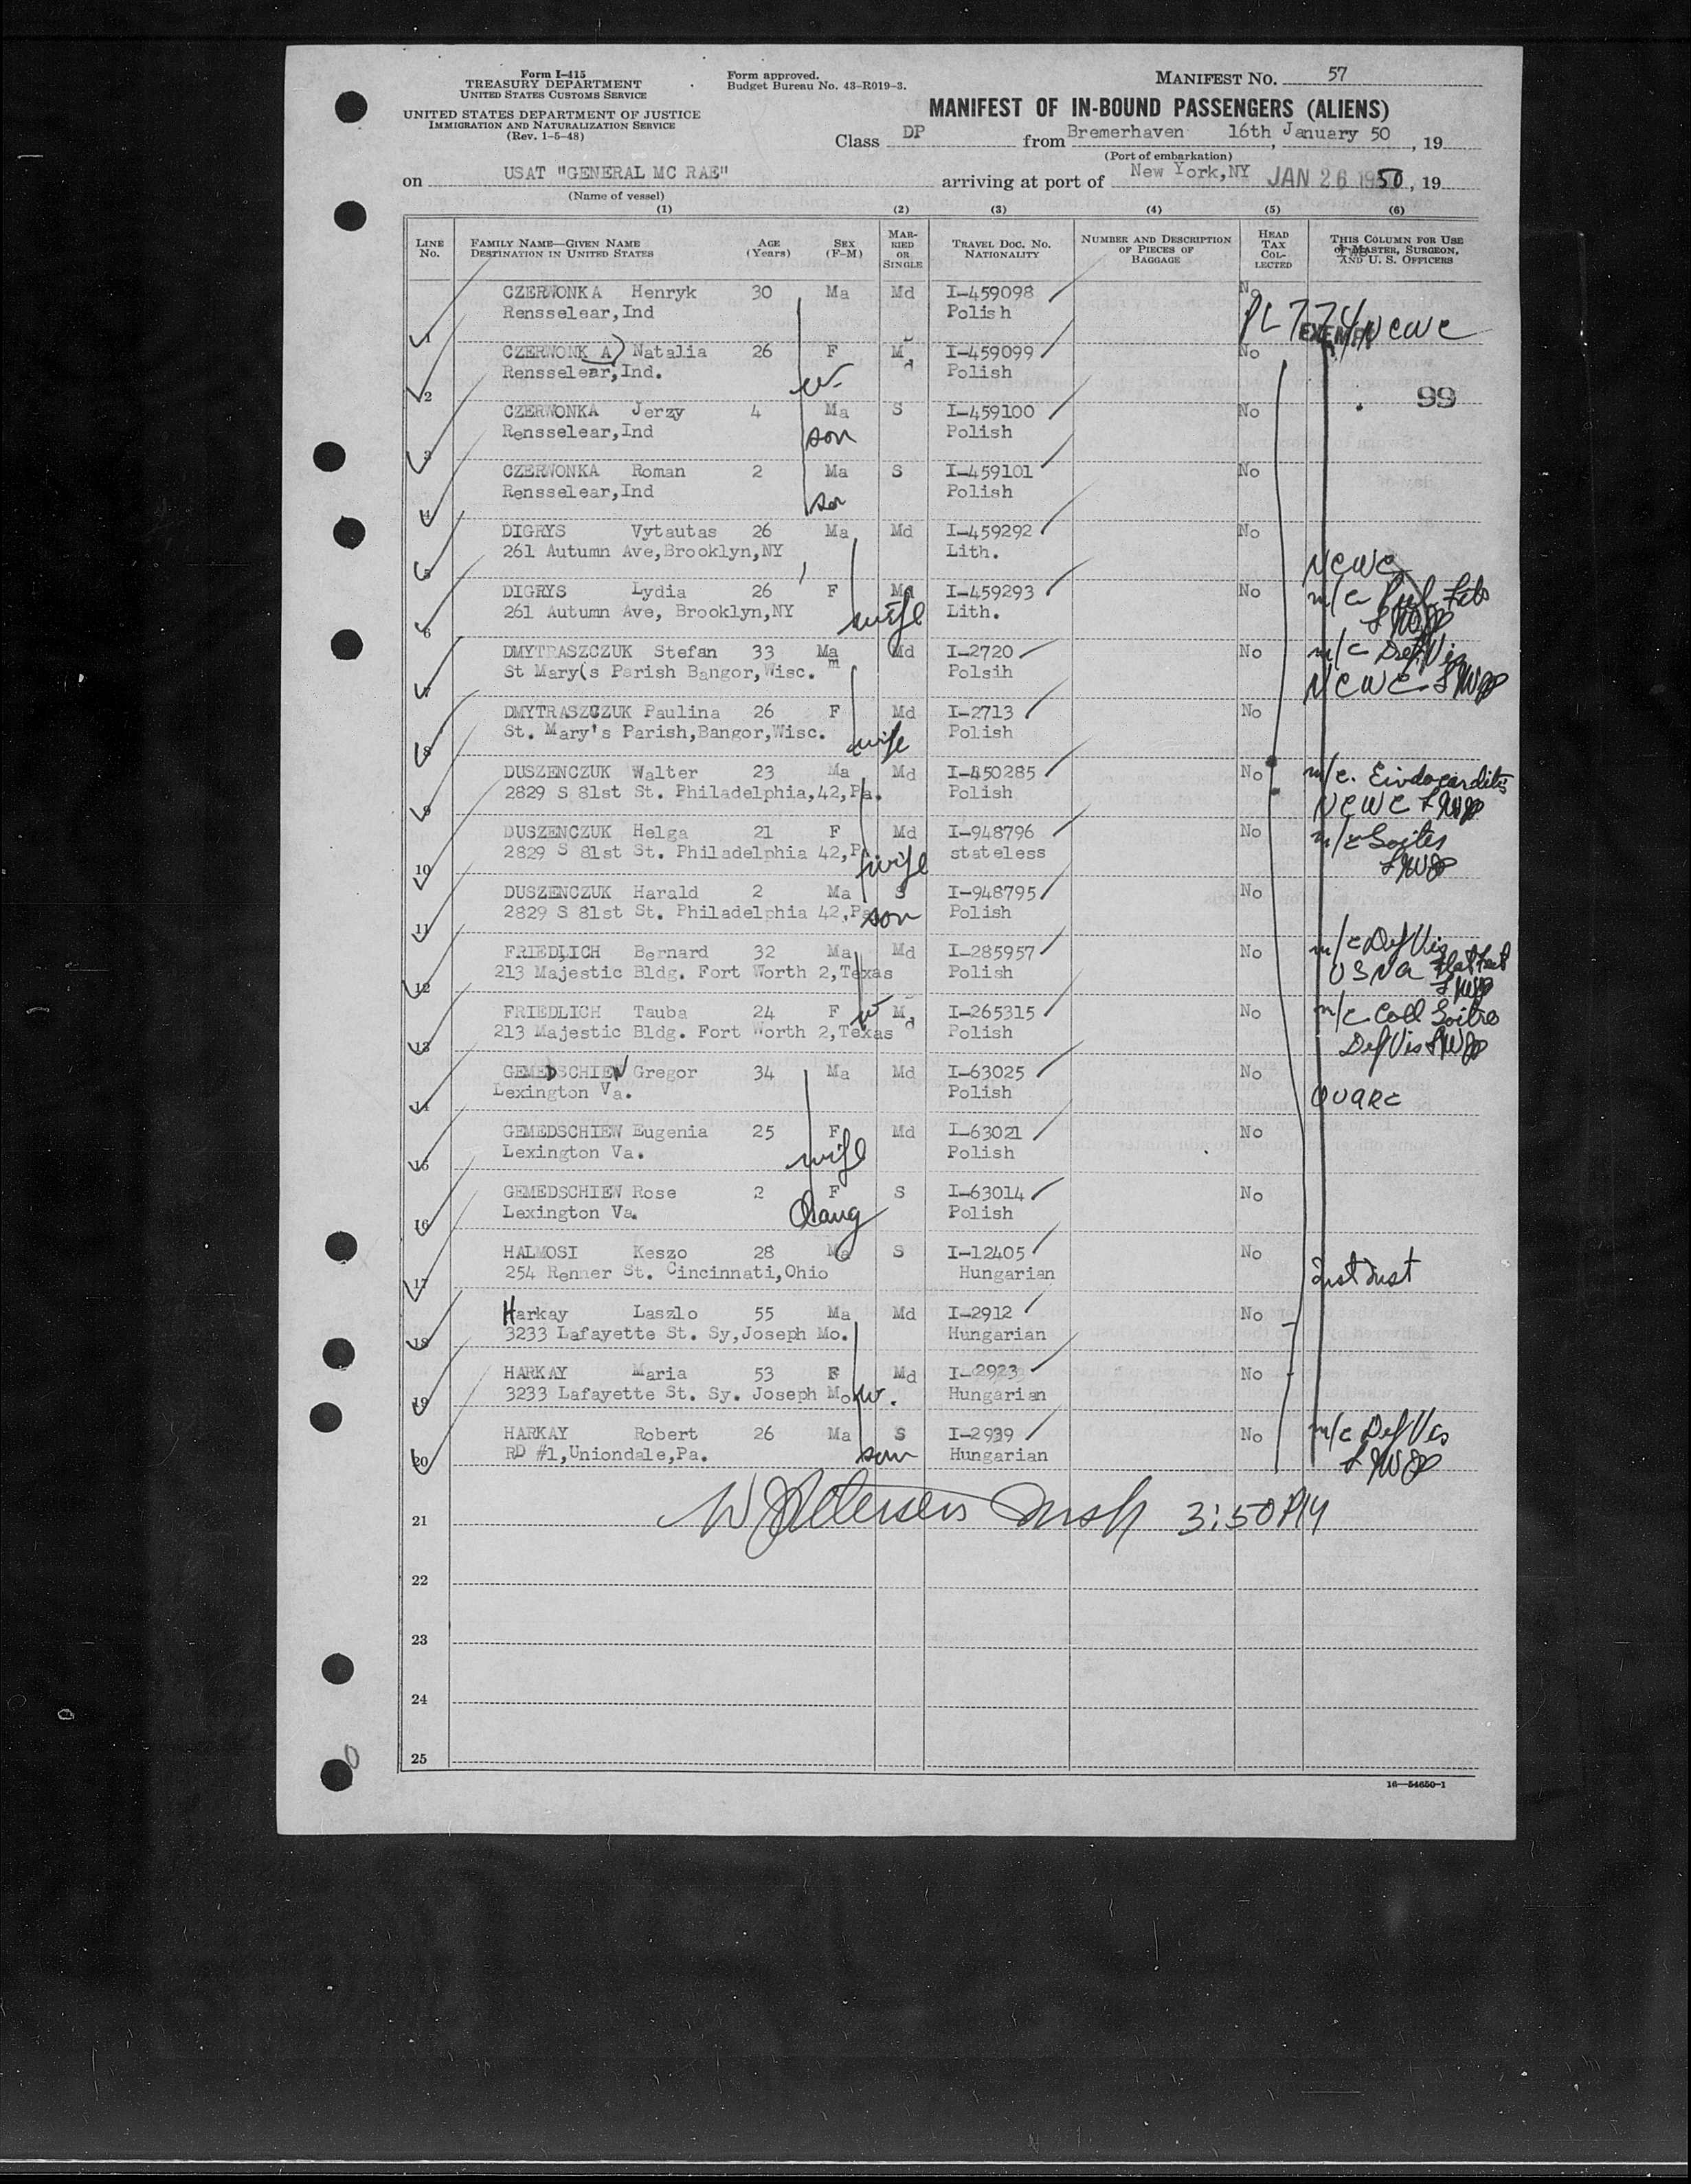 Form I-415
TREASURY DEPARTMENT
UNITED STATES CUSTOMS SERVICE
UNITED STATES DEPARTMENT OF JUSTICE
IMMIGRATION AND NATURALIZATION SERVICE
(Rev. 1-5-48)
Form approved.
Budget Bureau No. 43-R019-3.
MANIFEST NO. 57
MANIFEST OF IN-BOUND PASSENGERS (ALIENS)
Class DP from Bremerhaven 16th January 50, 19
(Port of embarkation)
on USAT "GENERAL MC RAE" arriving at port of New York,NY JAN 26 1950, 19
(Name of vessel)
(1) (2) (3) (4) (5) (6)
LINE No. FAMILY NAME—GIVEN NAME DESTINATION IN UNITED STATES AGE (Years) SEX (F-M) MARRIED OR SINGLE TRAVEL DOC. NO. NATIONALITY NUMBER AND DESCRIPTION OF PIECES OF BAGGAGE HEAD TAX COLLECTED THIS COLUMN FOR USE OF MASTER, SURGEON, AND U. S. OFFICERS
CZERWONKA Henryk 30 Ma Md I-459098 No
1 Rensselear,Ind Polish PL 774 NCWC
EXEMPT
CZERWONK A) Natalia 26 F Md I-459099 No
2 Rensselear,Ind. w Polish 99
CZERWONKA Jerzy 4 Ma S I-459100 No
3 Rensselear,Ind son Polish
CZERWONKA Roman 2 Ma S I-459101 No
4 Rensselear,Ind son Polish
DIGRYS Vytautas 26 Ma Md I-459292 No
5 261 Autumn Ave,Brooklyn,NY Lith. NCWC
DIGRYS Lydia 26 F Md I-459293 No m/c
6 261 Autumn Ave, Brooklyn,NY wife Lith.
DMYTRASZCZUK Stefan 33 Ma m Md I-2720 No m/c Def Vis
7 St Mary(s Parish Bangor,Wisc. Polsih NCWC
DMYTRASZCZUK Paulina 26 F Md I-2713 No
8 St. Mary's Parish,Bangor,Wisc. wife Polish
DUSZENCZUK Walter 23 Ma Md I-450285 No m/c. Eindocarditis
9 2829 S 81st St. Philadelphia,42,Pa. Polish NCWC
DUSZENCZUK Helga 21 F Md I-948796 No m/c
10 2829 S 81st St. Philadelphia 42,P wife stateless
DUSZENCZUK Harald 2 Ma S I-948795 No
11 2829 S 81st St. Philadelphia 42,Pa son Polish
FRIEDLICH Bernard 32 Ma Md I-285957 No m/c Def Vis
12 213 Majestic Bldg. Fort Worth 2,Texas Polish USNA Flat Feet
FRIEDLICH Tauba 24 F w Md I-265315 No m/c Coll Goitre
13 213 Majestic Bldg. Fort Worth 2,Texas Polish Def Vis
GEMEDSCHIEW Gregor 34 Ma Md I-63025 No
14 Lexington Va. Polish
GEMEDSCHIEW Eugenia 25 F Md I-63021 No
15 Lexington Va. wife Polish
GEMEDSCHIEW Rose 2 F S I-63014 No
16 Lexington Va. Daug Polish
HALMOSI Keszo 28 Ma S I-12405 No
17 254 Renner St. Cincinnati,Ohio Hungarian
Harkay Laszlo 55 Ma Md I-2912 No
18 3233 Lafayette St. Sy,Joseph Mo. Hungarian
HARKAY Maria 53 F Md I-2923 No
19 3233 Lafayette St. Sy. Joseph Mo. w. Hungarian
HARKAY Robert 26 Ma S I-2939 No m/c Def Vis
20 RD #1,Uniondale,Pa. son Hungarian
21 3:50 PM
22
23
24
25
16—54650-1